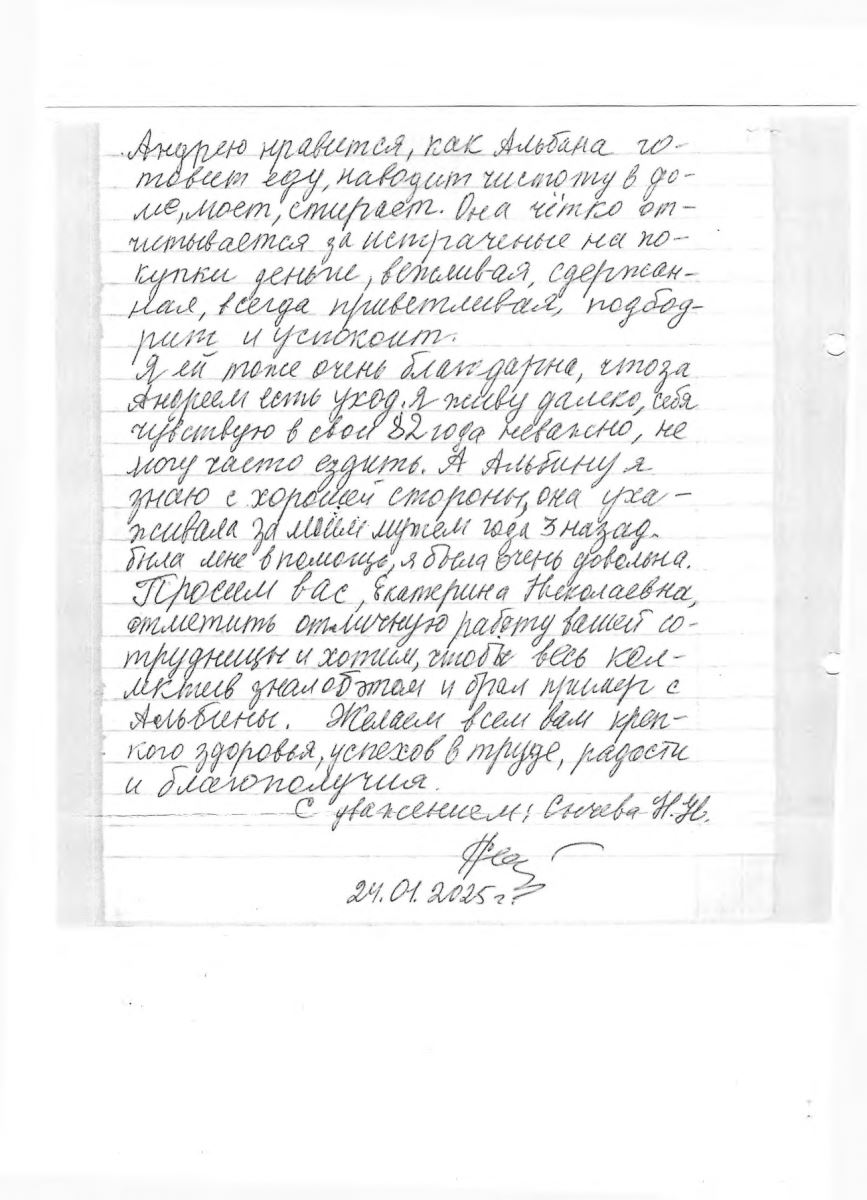 Андрею нравится, как Альбана го-
товит еду, наводит чистоту в до-
ме, моет, стирает. Она чётко от-
читывается за истраченые на по-
купки деньги, вежливая, сдержан-
ная, всегда приветливая, подбод-
рит и успокоит.
Я ей тоже очень благодарна, что за
Андреем есть уход. Я живу далеко, себя
чувствую в свои 82 года неважно, не
могу часто ездить. А Альбину я
знаю с хорошей стороны, она уха-
живала за моим мужем года 3 назад.
была мне в помощь, я была очень довольна.
Просим вас, Екатерина Николаевна,
отметить отличную работу вашей со-
трудницы и хотим, чтобы весь кол-
лектив знал об этом и брал пример с
Альбины. Желаем всем вам креп-
кого здоровья, успехов в труде, радости
и благополучия.
С уважением: Сычева Н.Н.
24.01.2025 г.